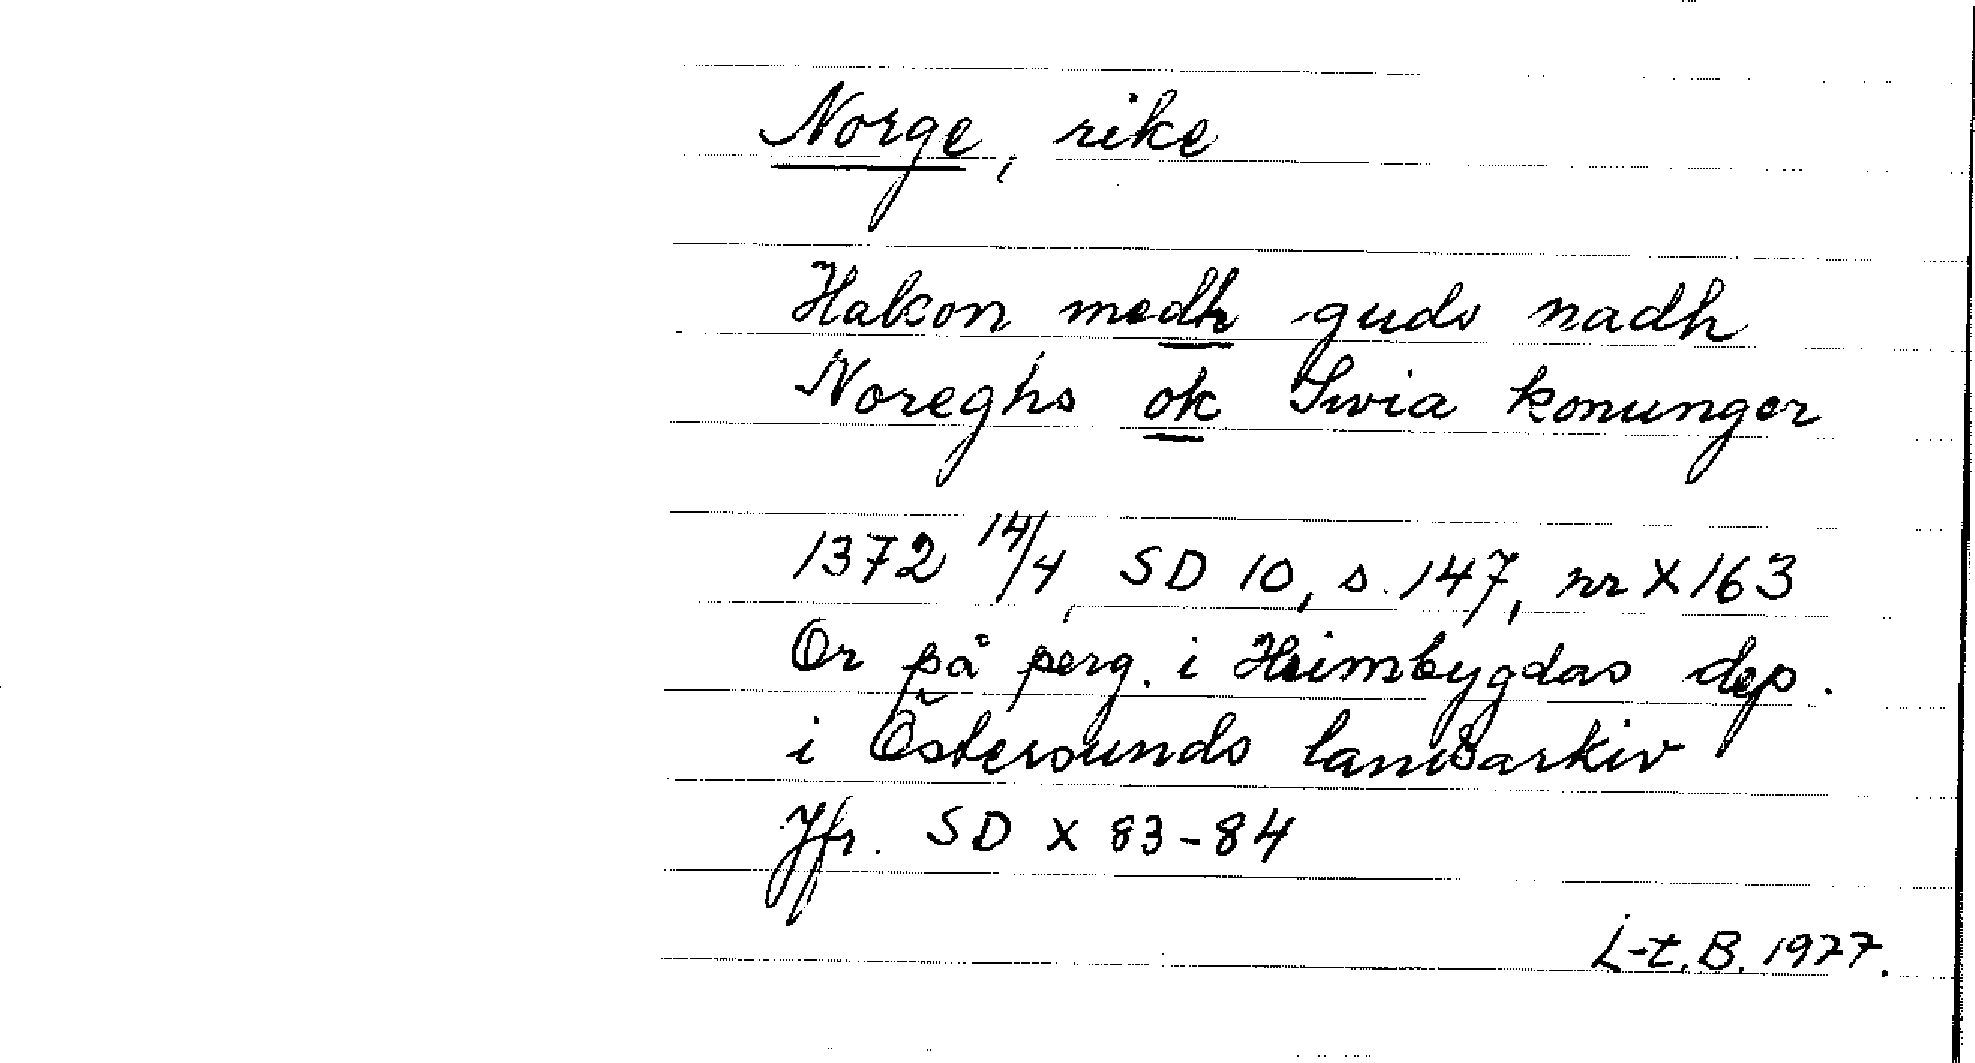 Norge, rike
Hakon medh guds nadh
Noreghs ok Swia konunger
1372 14/4, SD 10, s. 147, nr X 163
Or på perg. i Heimbygdas dep.
i Östersunds landsarkiv
Jfr. SD X 83-84
L-t. B. 1977.